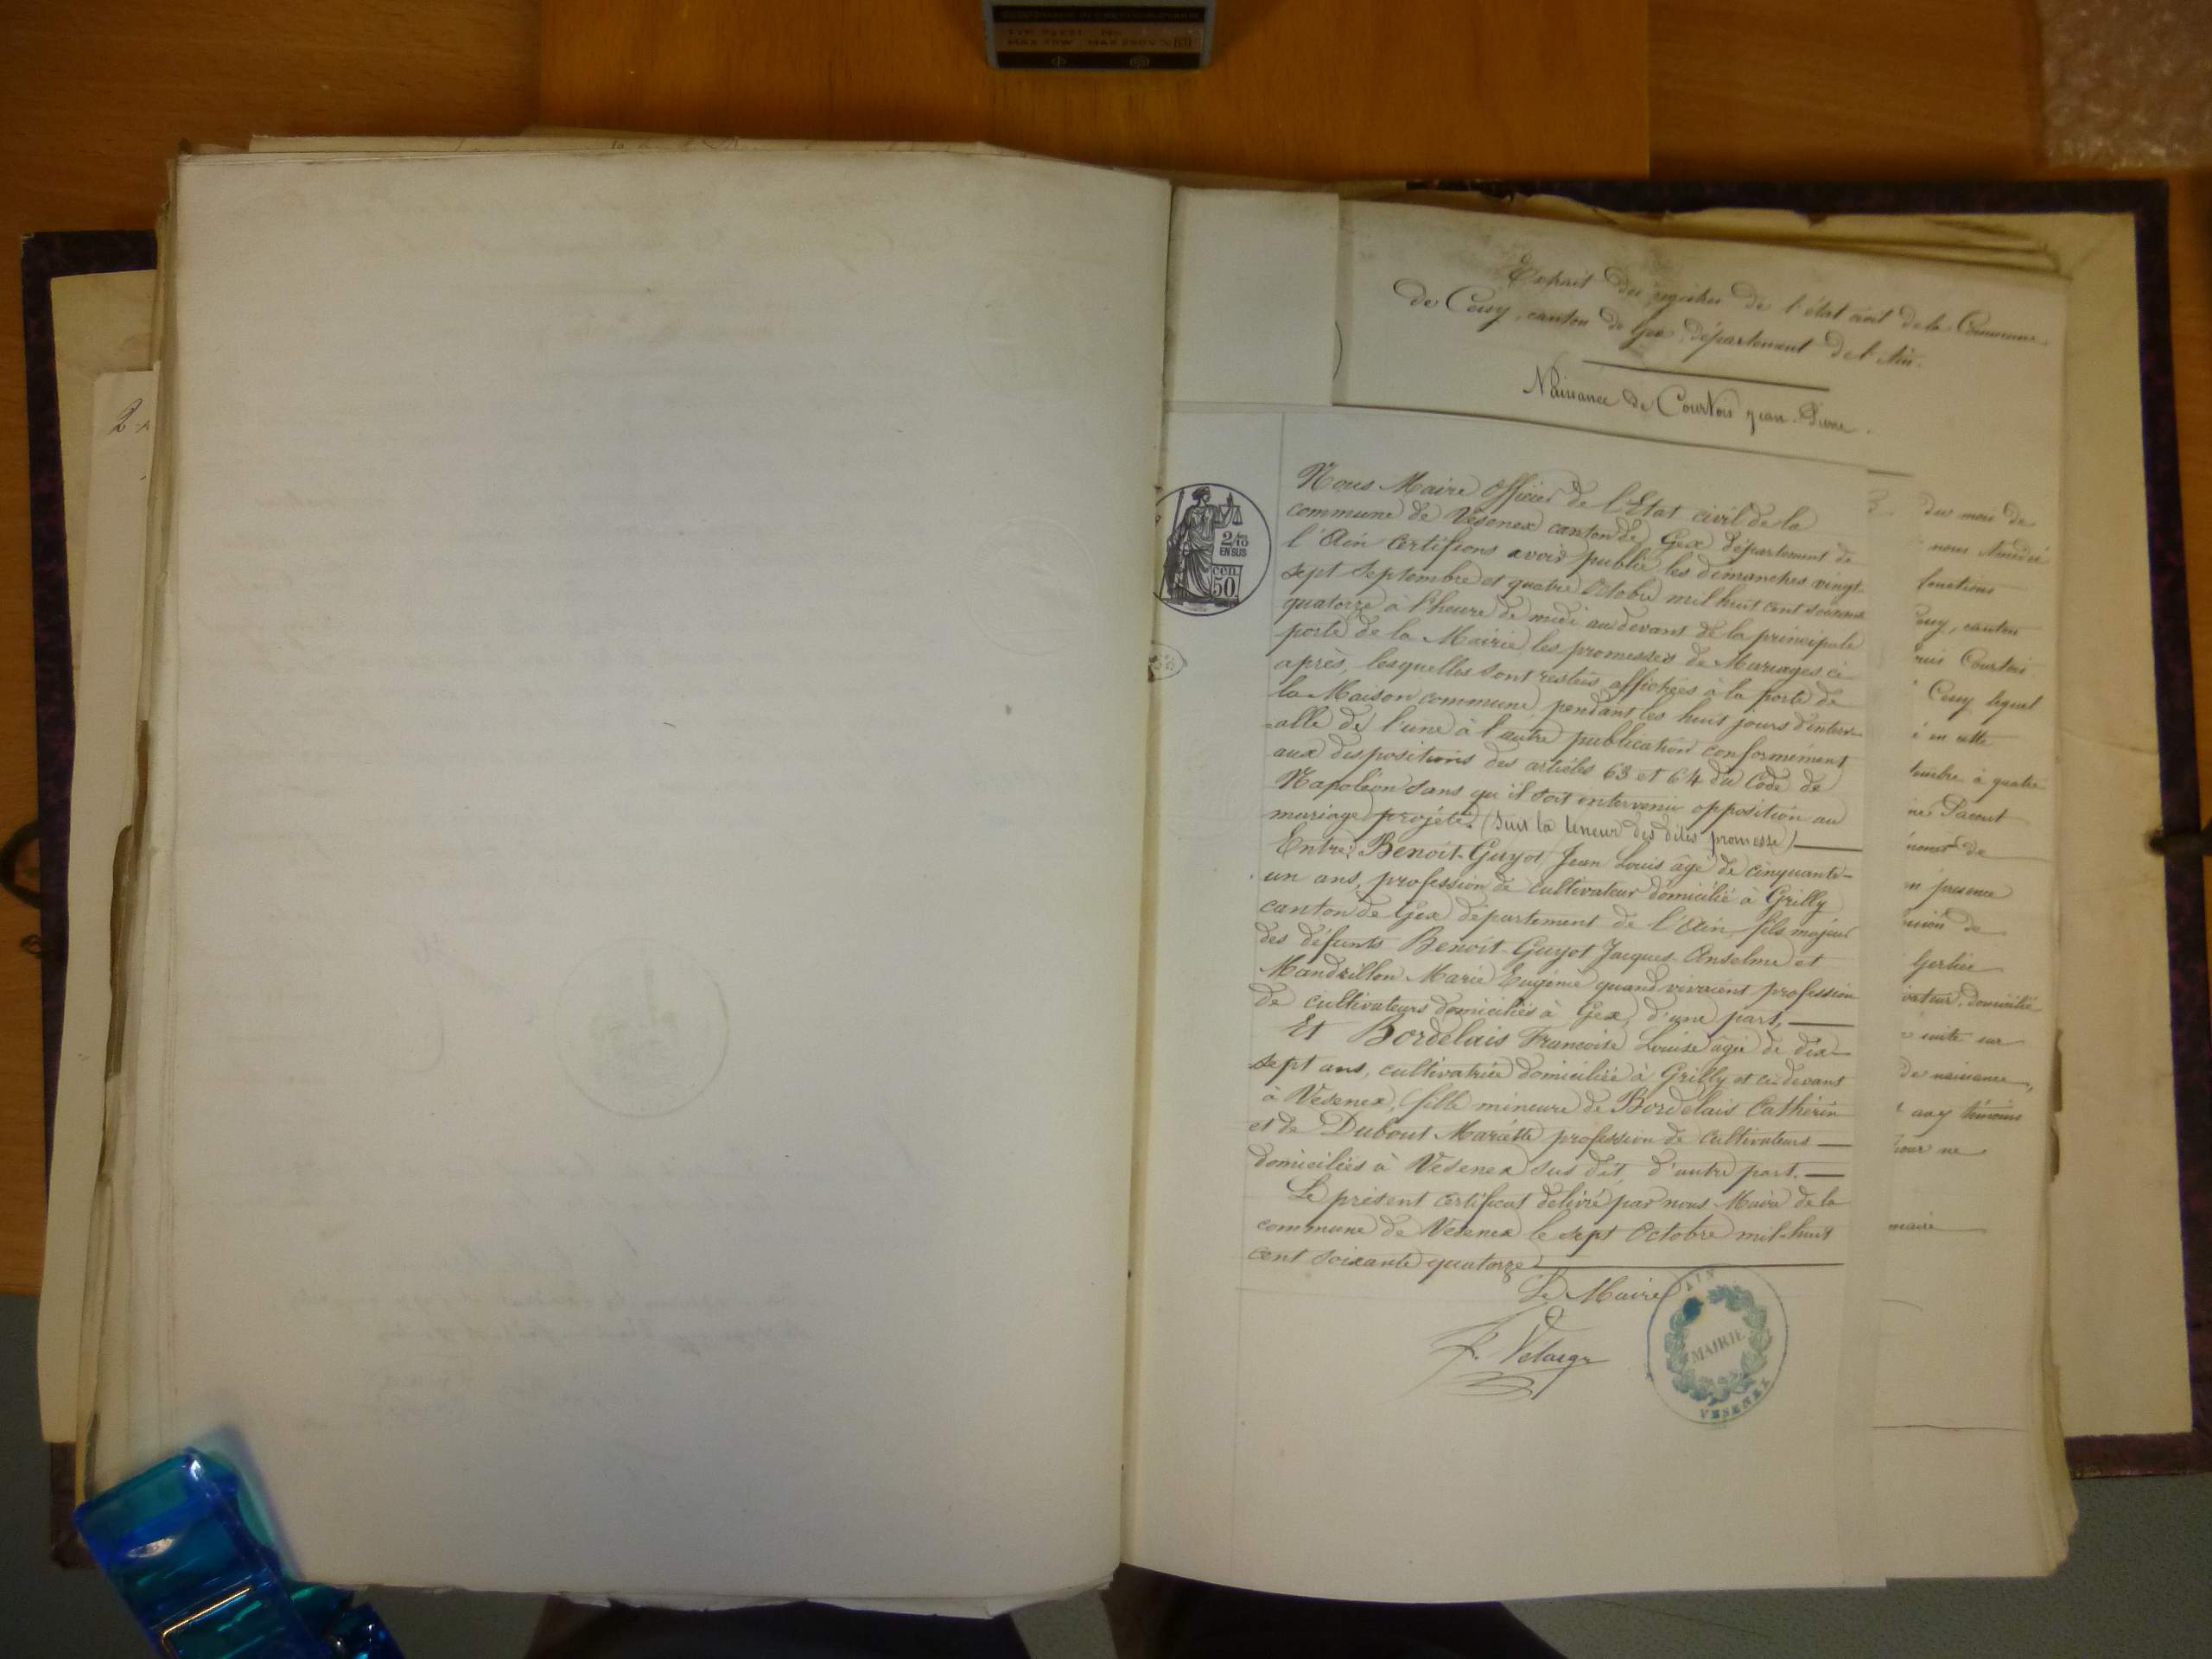 Extrait des registres de l'état civil de la Commune
de Cessy, canton de Gex, département de l'Ain.
Naissance de Courtois Jean-Pierre.
2/10
EN SUS
cen.
50.
Nous Maire Officier de l'Etat civil de la
commune de Vesenex canton de Gex département de
l'Ain Certifions avoir publié les dimanches vingt
sept Septembre et quatre Octobre mil huit cent soixante
quatorze à l'heure de midi au devant de la principale
porte de la Mairie les promesses de Mariages ci-
après, lesquelles sont restées affichées à la porte de
la Maison commune pendant les huit jours d'interv-
-alle de l'une à l'autre publication conformément
aux dispositions des articles 63 et 64 du Code de
Napoléon sans qu'il soit intervenu opposition au
mariage projeté. (Suit la teneur des dites promesse)
Entre: Benoit-Guyot Jean Louis âgé de cinquante-
un ans, profession de cultivateur domicilié à Grilly
canton de Gex département de l'Ain, fils majeur
des défunts Benoit-Guyot Jacques Anselme et
Mandrillon Marie Eugénie quand vivaient profession
de cultivateurs domiciliés à Gex, d'une part,
Et Bordelais Francoise Louise âgée de dix-
sept ans, cultivatrice domiciliée à Grilly et ci-devant
à Vesenex, fille mineure de Bordelais Cathérin
et de Dubout Mariette profession de Cultivateurs
domiciliés à Vesenex sus dit, d'autre part.
Le présent certificat délivré par nous Maire de la
commune de Vesenex le sept Octobre mil-huit
cent soixante quatorze
Le Maire
AIN
MAIRIE
VESENEX
du mois de
nous Amédée
fonctions
canton
Courtois
Cessy lequel
en cette
à quatre
de
présence
de
Gerlier
domicilié
suite sur
de naissance,
aux témoins
ne
maire